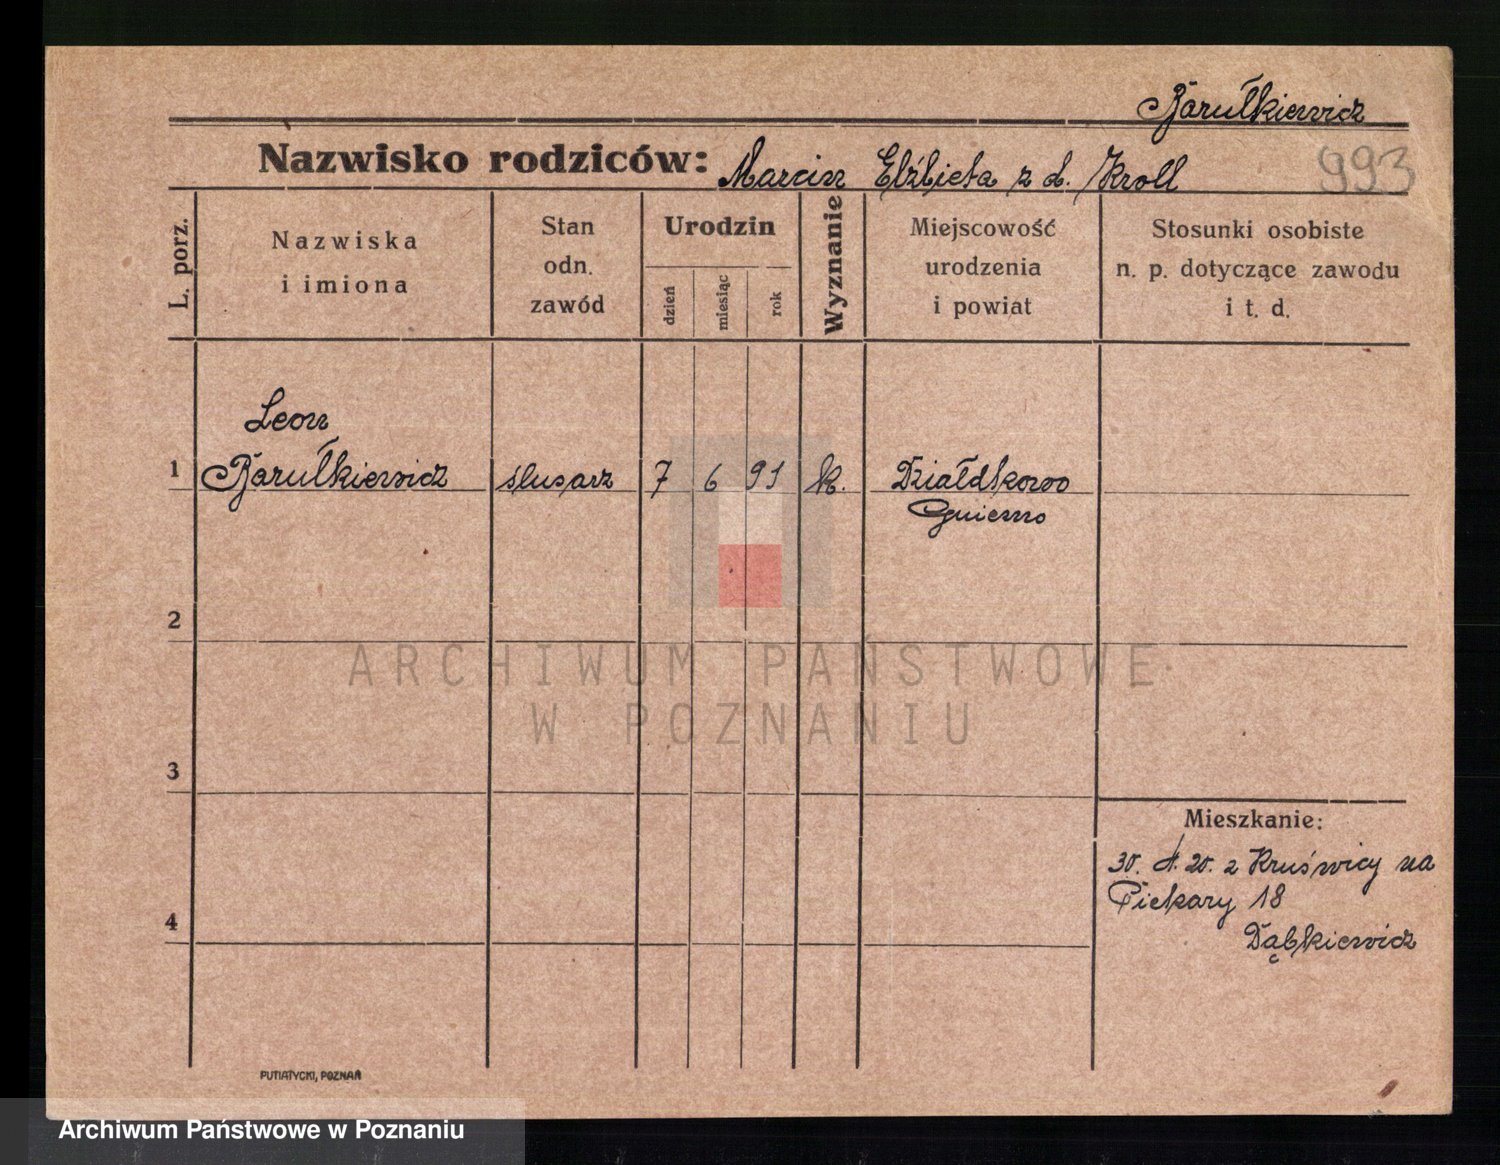 Barułkiewicz
Nazwisko rodziców: Marcin Elżbieta z d. Kroll 993
L. porz.
Nazwiska
i imiona
Stan
odn.
zawód
Urodzin
dzień
miesiąc
rok
Wyznanie
Miejscowość
urodzenia
i powiat
Stosunki osobiste
n. p. dotyczące zawodu
i t. d.
Leon
1 Barułkiewicz ślusarz 7 6 91 k. Działdkowo
Gniezno
2
3
4
Mieszkanie:
30. 20. z Kruświcy na
Piekary 18
Dąbkiewicz
PUTIATYCKI, POZNAŃ
ARCHIWUM PAŃSTWOWE
W POZNANIU
Archiwum Państwowe w Poznaniu